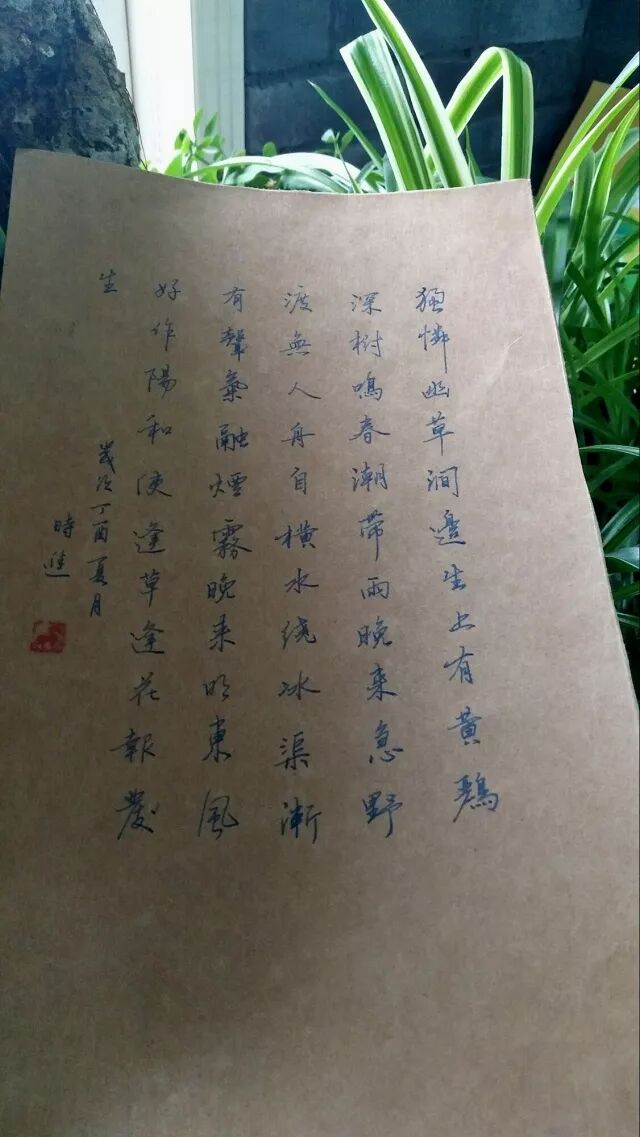 獨憐幽草澗邊生上有黃鸝
深樹鳴春潮帶雨晚來急野
渡無人舟自橫水繞冰渠漸
有聲氣融煙霧晚來明東風
好作陽和使逢草逢花報發
生
歲次丁酉夏月
時進